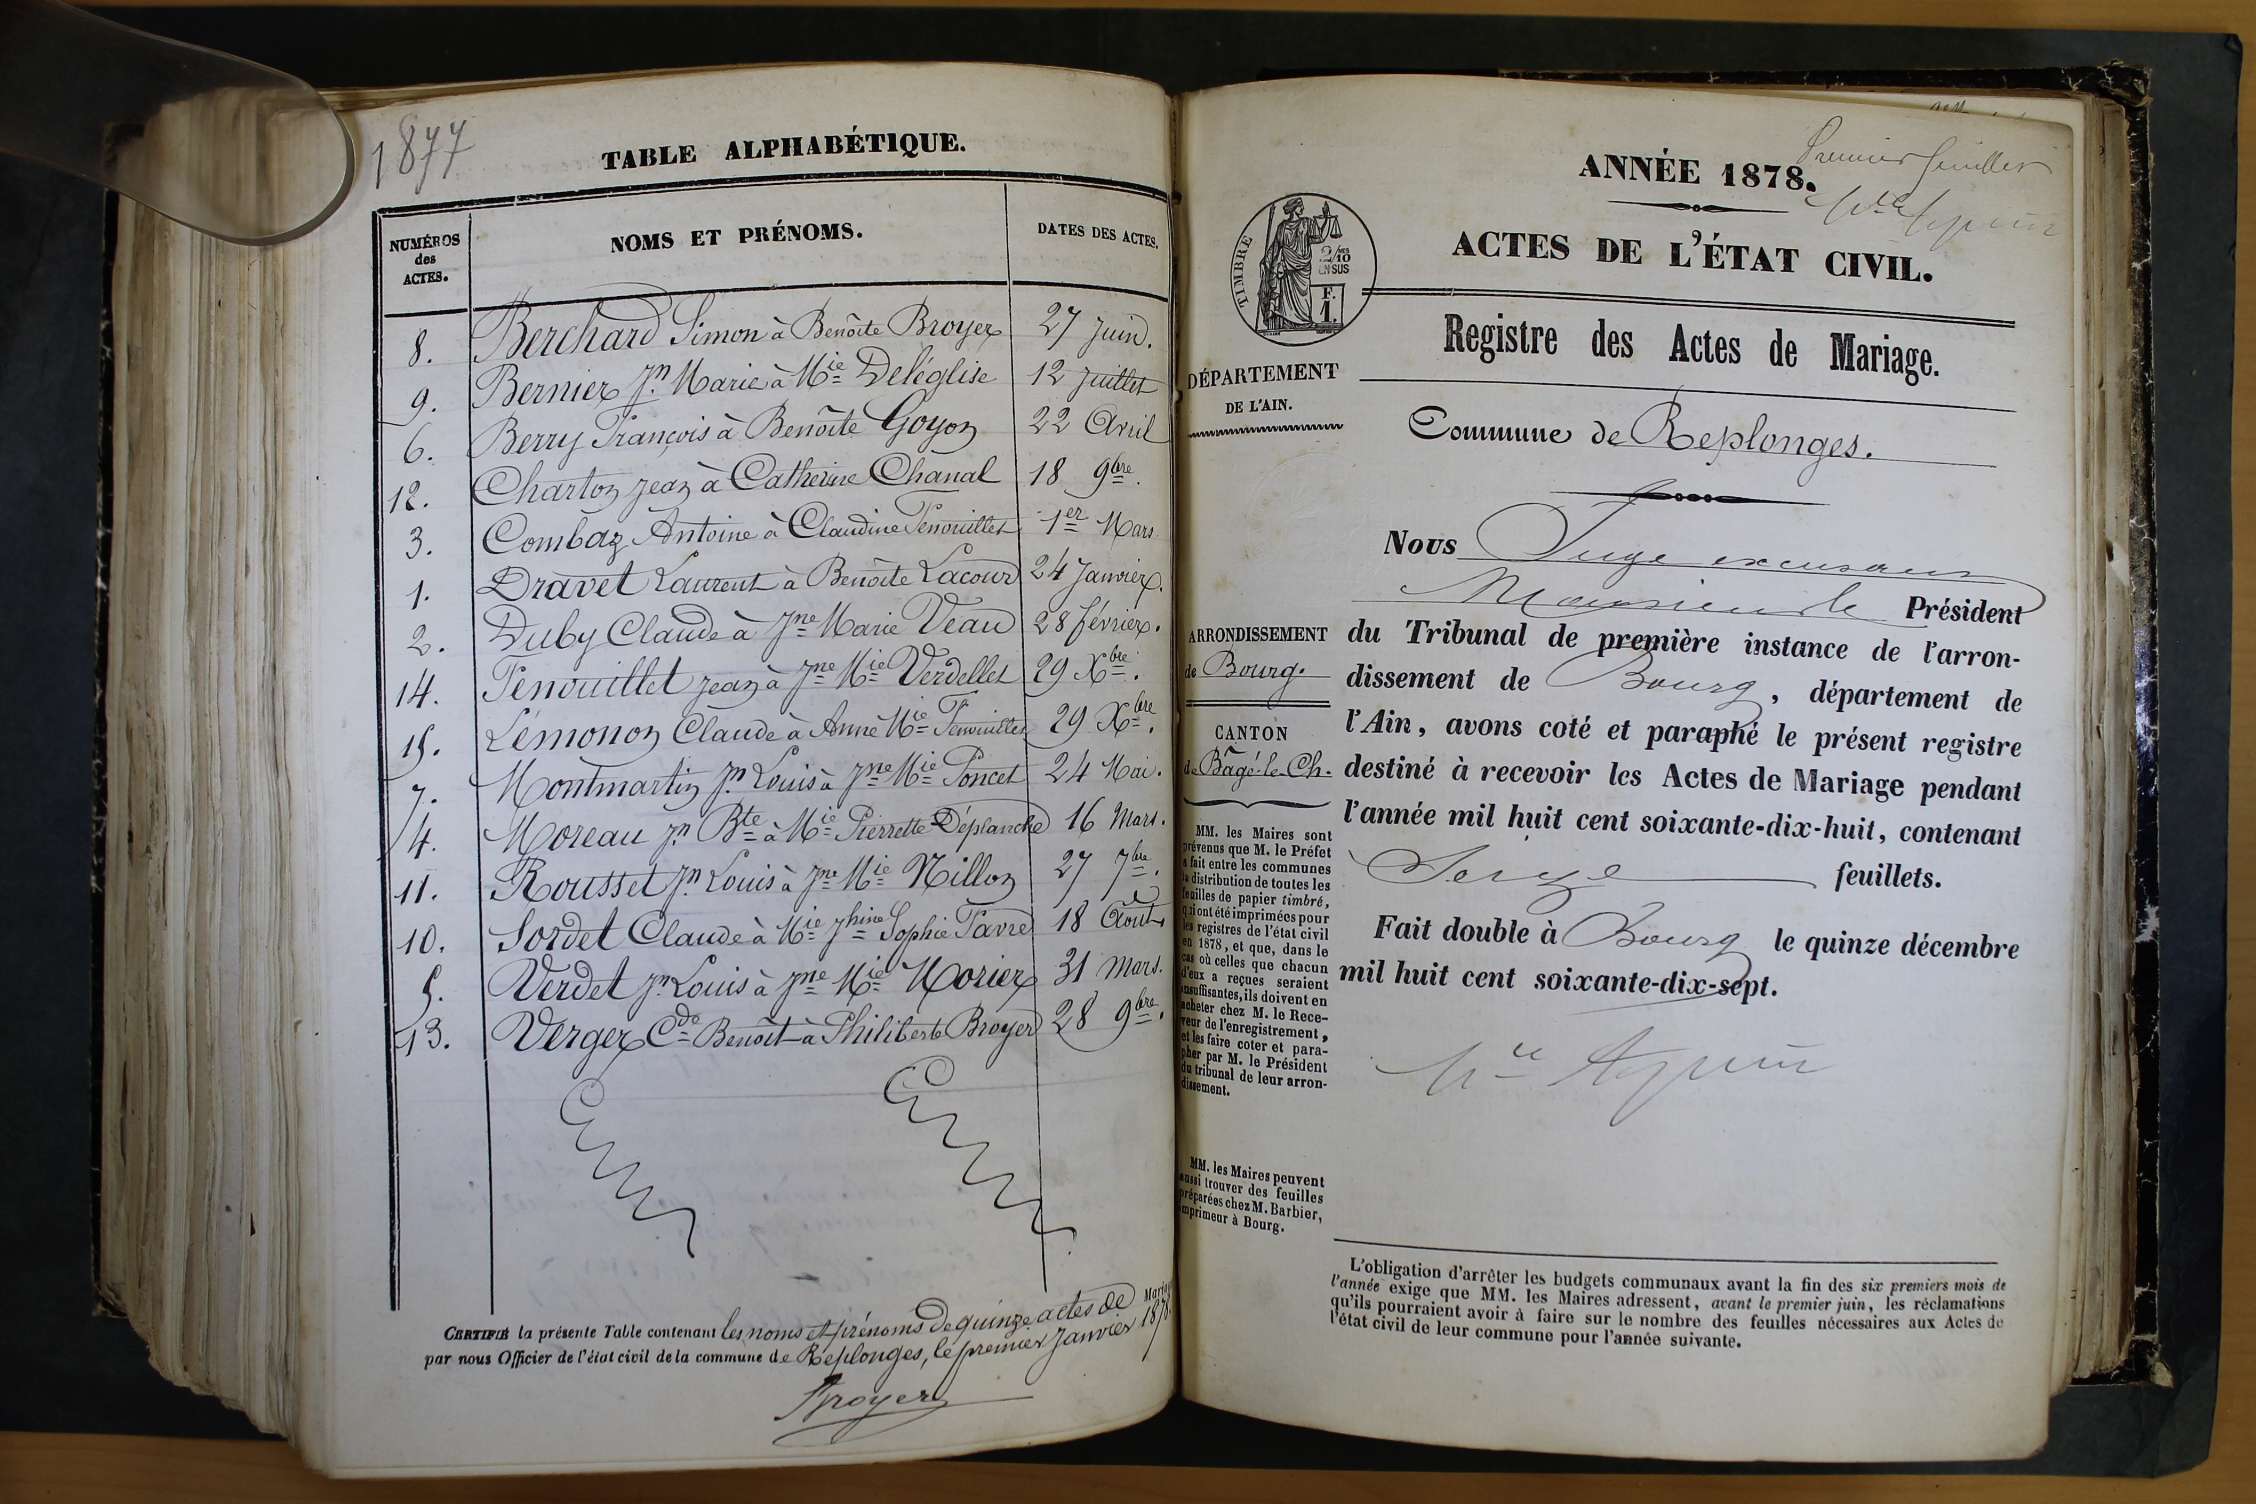 1877
TABLE ALPHABÉTIQUE.
NUMÉROS
des
ACTES.
NOMS ET PRÉNOMS.
DATES DES ACTES.
8. Berchard Simon à Benôite Broyer 27 Juin.
9. Bernier Jn. Marie à Mie Deléglise 12 Juillet
6. Berry François à Benôite Goyon 22 Avril
12. Charton Jean à Catherine Chanal 18 9bre.
3. Combaz Antoine à Claudine Fenouillet 1er Mars
1. Dravet Laurent à Benôite Lacour 24 Janvier.
2. Duby Claude à Jne Marie Veau 28 février.
14. Fenouillet Jean à Jne Mie Verdellet 29 Xbre.
15. Lémonon Claude à Anne Mie Fenouillet 29 Xbre.
7. Montmartin Jn Louis à Jne Mie Poncet 24 Mai.
4. Moreau Jn Bte à Mie Pierrette Déplanche 16 Mars.
11. Rousset Jn Louis à Jne Mie Nillon 27 7bre.
10. Sordet Claude à Mie Jhine Sophie Favre 18 Août
5. Verdet Jn Louis à Jne Mie Morier 31 Mars.
13. Verger Cde Benôit à Philiberte Broyer 28 9bre.
CERTIFIÉ la présente Table contenant les noms et prénoms de quinze actes de Mariage
par nous Officier de l'état civil de la commune de Replonges, le premier Janvier 1878.
Broyer
Premier feuillet
ANNÉE 1878.
ACTES DE L'ÉTAT CIVIL.
TIMBRE
2/10
EN SUS
F.
1.
Registre des Actes de Mariage.
DÉPARTEMENT
DE L'AIN.
Commune de Replonges.
Nous Juge excusant
Monsieur le Président
du Tribunal de première instance de l'arron-
dissement de Bourg, département de
l'Ain, avons coté et paraphé le présent registre
destiné à recevoir les Actes de Mariage pendant
l'année mil huit cent soixante-dix-huit, contenant
Seize feuillets.
Fait double à Bourg le quinze décembre
mil huit cent soixante-dix-sept.
ARRONDISSEMENT
de Bourg.
CANTON
de Bâgé-le-Ch.
MM. les Maires sont
prévenus que M. le Préfet
a fait entre les communes
la distribution de toutes les
feuilles de papier timbré,
qui ont été imprimées pour
les registres de l'état civil
en 1878, et que, dans le
cas où celles que chacun
d'eux a reçues seraient
insuffisantes, ils doivent en
acheter chez M. le Rece-
veur de l'enregistrement,
et les faire coter et para-
pher par M. le Président
du tribunal de leur arron-
dissement.
MM. les Maires peuvent
aussi trouver des feuilles
préparées chez M. Barbier,
imprimeur à Bourg.
L'obligation d'arrêter les budgets communaux avant la fin des six premiers mois de
l'année exige que MM. les Maires adressent, avant le premier juin, les réclamations
qu'ils pourraient avoir à faire sur le nombre des feuilles nécessaires aux Actes de
l'état civil de leur commune pour l'année suivante.